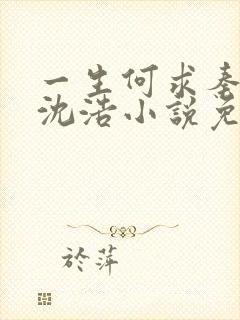 一生何求秦
沈浩小說免
於萍